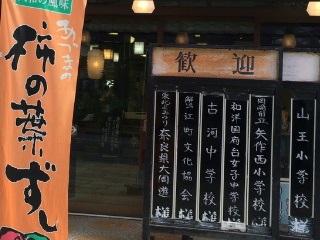 大和の風味
あづまの
柿の葉ずし
歓迎
山王小学校様
岡崎市立
矢作西小学校様
和洋国府台女子中学校様
古河中学校様
蟹江町文化協会様
奈良県大周遊様